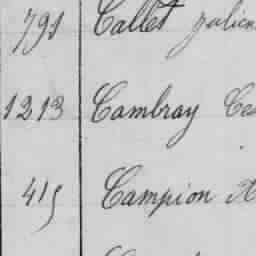 791 Callet Julien
1213 Cambray
415 Campion